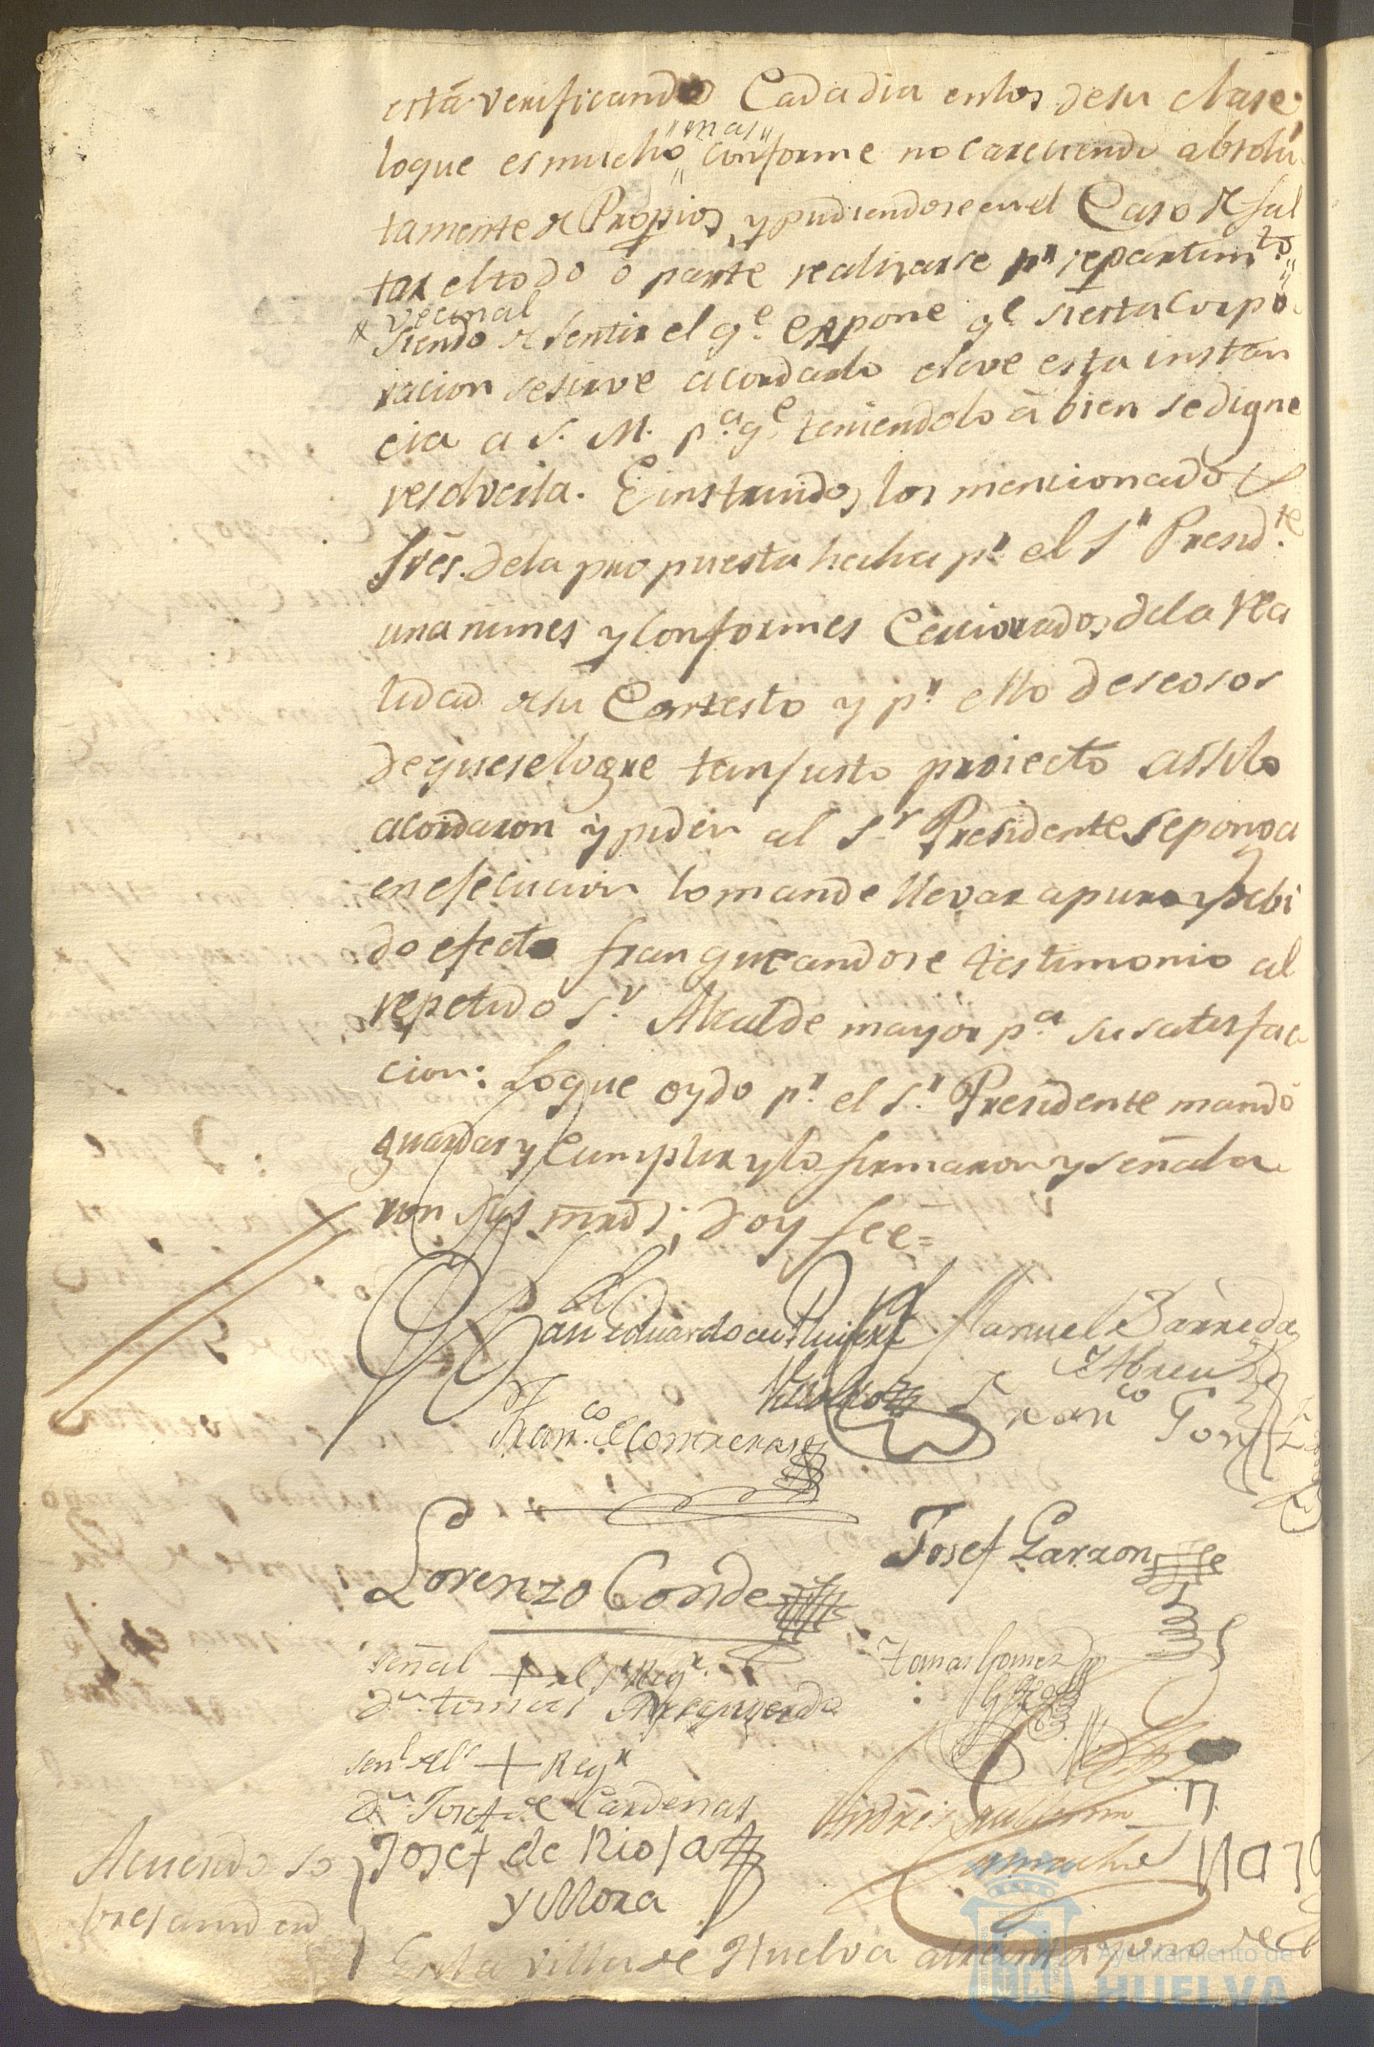 está verificando Cada dia en los de su clase
"mas"
loque es mucho conforme no careciendo absolu
tamente de Propios, y pudiendose en el Caso de fal
tar el todo ó parte realizarse pr. repartimto
vecinal
Siendo de sentir el qe. expone qe. si esta Corpo
racion se sirve acordarlo eleve esta instan
cia a S. M. pa. qe. teniendolo á bien se digne
resolverla. E instruidos, los mencionados
Sres. dela propuesta hecha pr. el Sr Presidte.
unanimes y Conformes Cerciorados, dela rea
lidad de su Contesto y pr. ello deseosos
de que se logre tan justo proiecto assilo
acordaron y piden al Sr Presidente se ponga
en efecucion lo mande llevar a puro y debi
do efecto franqueandose testimonio al
repetido Sr Alcalde mayor pa su satisfac
cion: Loque oydo pr. el Sr. Presidente mandó
guardar y Cumplir y lo firmaron y señala
ron sus mrds; doy fee=
Manuel Barreda
y Abreu
Franco. de Contreras
Franco
Josef Garzon
Lorenzo Conde
señal + del Sr Regr.
Dn tomas
Tomas Gomez
senl del + Regr
Dn. Josef de Cardenas
Josef de Riosa
y Mora
Camacho
Acuerdo so
En la villa de Huelva a treinta y uno de
Ayuntamiento de
HUELVA